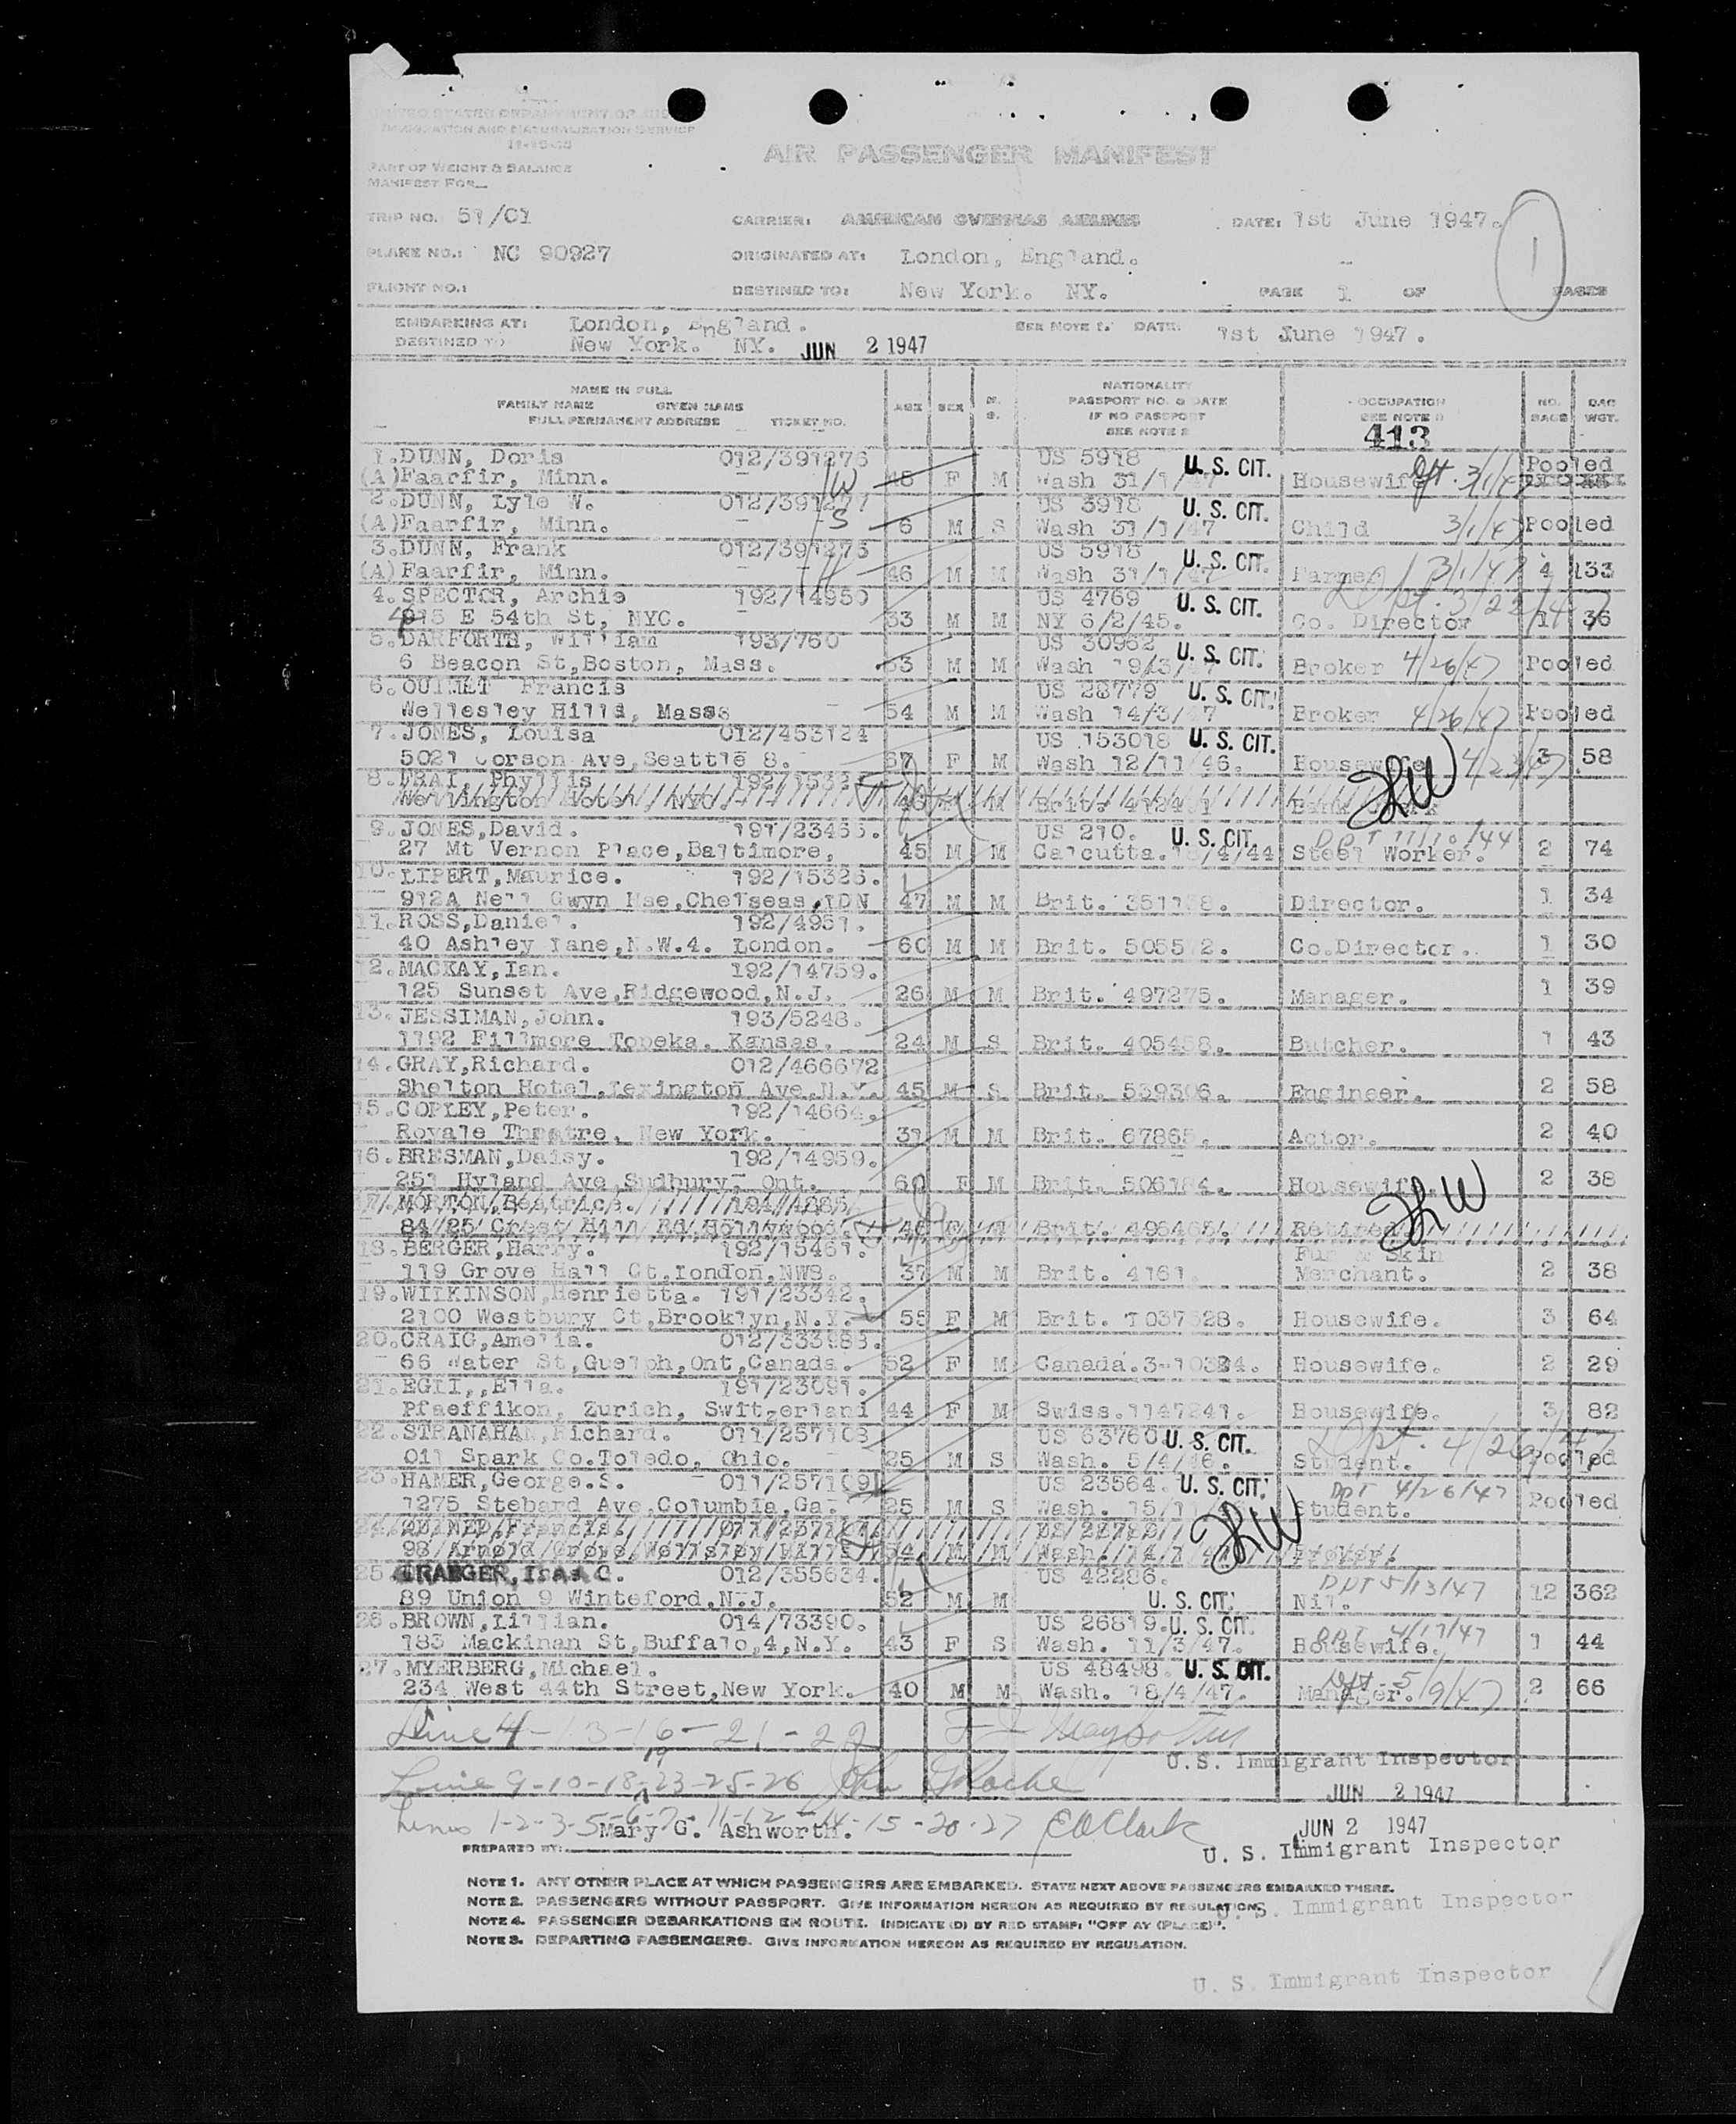 UNITED STATES DEPARTMENT OF
IMMIGRATION AND NATURALIZATION SERVICE
PART OF WEIGHT & BALANCE
MANIFEST FOR
AIR PASSENGER MANIFEST
TRIP NO. 51/01 CARRIER: AMERICAN OVERSEAS AIRLINES DATE: 1st June 1947.
1
PLANE NO.: NC 90927 ORIGINATED AT: London, England.
FLIGHT NO.: DESTINED TO: New York. NY. PAGE 1 OF PAGES
EMBARKING AT: London, England. SEE NOTE 1. DATE: 1st June 1947.
DESTINED TO New York. NY. JUN 2 1947
NAME IN FULL
FAMILY NAME GIVEN NAME
FULL PERMANENT ADDRESS TICKET NO.
AGE SEX M. S.
NATIONALITY
PASSPORT NO. & DATE
IF NO PASSPORT
SEE NOTE 2
OCCUPATION
SEE NOTE
413
NO. BAGS
BAG WGT.
1. DUNN, Doris 012/391276 US 5918 U. S. CIT. Pooled
(A) Faarfir, Minn. W 48 F M Wash 31/1/47 Housewife
2. DUNN, Lyle W. 012/391277 US 5918 U. S. CIT.
(A) Faarfir, Minn. S 6 M S Wash 31/1/47 Child 3/1/47 Pooled
3. DUNN, Frank 012/391275 US 5918 U. S. CIT.
(A) Faarfir, Minn. H 46 M M Wash 31/1/47 Farmer 3/1/47 4 133
4. SPECTOR, Archie 192/14950 US 4769 U. S. CIT. Dpt. 3/22/47
E 54th St, NYC. 33 M M NY 6/2/45. Co. Director 1 36
5. DARFORTH, William 193/760 US 30962 U. S. CIT.
6 Beacon St, Boston, Mass. 53 M M Wash 19/3/47 Broker 4/26/47 Pooled
6. OUIMET Francis US 28779 U. S. CIT.
Wellesley Hills, Mass 54 M M Wash 14/3/47 Broker 4/26/47 Pooled
7. JONES, Louisa 012/453124 US 153018 U. S. CIT.
5021 Corson Ave, Seattle 8. 67 F M Wash 12/11/46. Housewife 4/23/47 3 58
8. Phyllis 192/1532
Wellington Hotel, NYC. M Brit. Bank
9. JONES, David. 191/23465. US 210. U. S. CIT. DPT 11/10/44
27 Mt Vernon Place, Baltimore, 45 M M Calcutta. 18/4/44 Steel Worker. 2 74
10. LIPERT, Maurice. 192/15326.
912A Nell Gwyn Hse, Chelseas, LDN 47 M M Brit. Director. 1 34
11. ROSS, Daniel. 192/4951.
40 Ashley Lane, N.W.4. London. 60 M M Brit. 505572. Co.Director. 1 30
12. MACKAY, Ian. 192/14759.
125 Sunset Ave, Ridgewood, N.J. 26 M M Brit. 497275. Manager. 1 39
13. JESSIMAN, John. 193/5248.
1192 Fillmore Topeka. Kansas. 24 M S Brit. 405458. Butcher. 1 43
14. GRAY, Richard. 012/466672
Shelton Hotel, Lexington Ave. N.Y. 45 M S Brit. 539306. Engineer. 2 58
15. COPLEY, Peter. 192/14664.
Royale Theatre, New York. 31 M M Brit. 67865. Actor. 2 40
16. BRESMAN, Daisy. 192/14959.
251 Hyland Ave, Sudbury, Ont. 60 F M Brit. 506184. Housewife. 2 38
17. MORTON, Beatrice. 194/4885
8425 Crest Hill Rd Hollywood. 46 F Brit. 495465. Retired
18. BERGER, Harry. 192/15461. Fur & Skin
119 Grove Hall Ct, London, NW8. 37 M M Brit. 4161 Merchant. 2 38
19. WILKINSON, Henrietta. 191/23342.
2100 Westbury Ct, Brooklyn, N.Y. 55 F M Brit. 1037628. Housewife. 3 64
20. CRAIG, Amelia. 012/333988.
66 Water St, Guelph, Ont, Canada. 52 F M Canada. Housewife. 2 29
21. EGLI,, Ella. 191/23091.
Pfaeffikon, Zurich, Switzerland 44 F M Swiss. 1147241. Housewife. 3 82
22. STRANAHAN, Richard. 011/257108 US 63760 U. S. CIT. Dpt. 4/26/47
Oil Spark Co. Toledo, Ohio. 25 M S Wash. 5/4/46. Student. Pooled
23. HAMER, George.S. 011/257109 US 23564. U. S. CIT. DPT 4/26/47
1275 Stebard Ave, Columbia, Ga. 25 M S Wash. 15/11/ Student. Pooled
24. Francis.
98 Arnold Grove Wellsley Hills 54 M M Wash. Broker.
25. TRAEGER, Isaa C. 012/355634. US 42286. DPT 5/13/47
89 Union 9 Winteford, N.J. 52 M M U. S. CIT. Nil. 12 362
26. BROWN, Lillian. 014/73390. US 26819. U. S. CIT. DPT 4/17/47
183 Mackinan St, Buffalo, 4, N.Y. 43 F S Wash. 11/3/47. Housewife. 1 44
27. MYERBERG, Michael. US 48498. U. S. CIT.
234 West 44th Street, New York. 40 M M Wash. 18/4/47. Manager. 5/9/47 2 66
Line 4 - 13 - 16 - 21 - 22
U. S. Immigrant Inspector
Line 9-10-18-19-23-25-26 John Roche
JUN 2 1947
Lines 1-2-3-5-6-7-11-12-14-15-20-27 Clark
Mary G. Ashworth.
JUN 2 1947
PREPARED BY: U. S. Immigrant Inspector
NOTE 1. ANY OTHER PLACE AT WHICH PASSENGERS ARE EMBARKED. STATE NEXT ABOVE PASSENGERS EMBARKED THERE.
NOTE 2. PASSENGERS WITHOUT PASSPORT. GIVE INFORMATION HEREON AS REQUIRED BY REGULATION.
U. S. Immigrant Inspector
NOTE 4. PASSENGER DEBARKATIONS EN ROUTE. INDICATE (D) BY RED STAMP: "OFF AT (PLACE)".
NOTE 3. DEPARTING PASSENGERS. GIVE INFORMATION HEREON AS REQUIRED BY REGULATION.
U. S. Immigrant Inspector